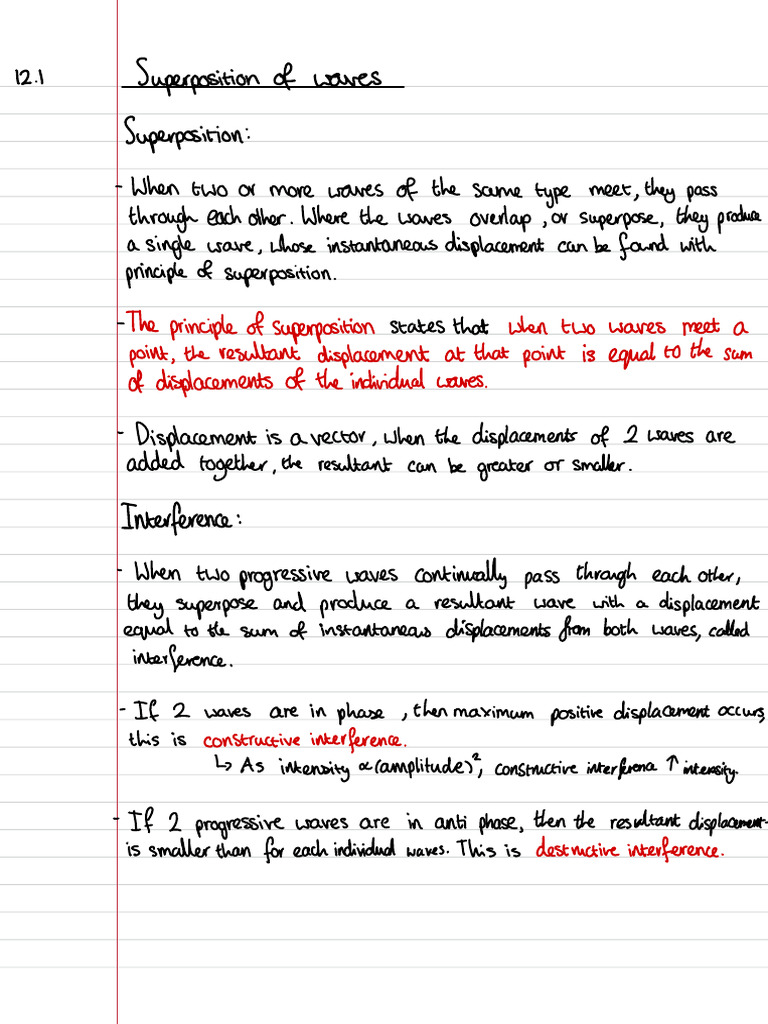 12.1 Superposition of waves
Superposition:
- When two or more waves of the same type meet, they pass
through each other. Where the waves overlap, or superpose, they produce
a single wave, whose instantaneous displacement can be found with
principle of superposition.
- The principle of superposition states that when two waves meet a
point, the resultant displacement at that point is equal to the sum
of displacements of the individual waves.
- Displacement is a vector, when the displacements of 2 waves are
added together, the resultant can be greater or smaller.
Interference:
- When two progressive waves continually pass through each other,
they superpose and produce a resultant wave with a displacement
equal to the sum of instantaneous displacements from both waves, called
interference.
- If 2 waves are in phase, then maximum positive displacement occurs,
this is constructive interference.
↳ As intensity ∝ (amplitude)², constructive interference ↑ intensity.
- If 2 progressive waves are in anti phase, then the resultant displacement
is smaller than for each individual waves. This is destructive interference.